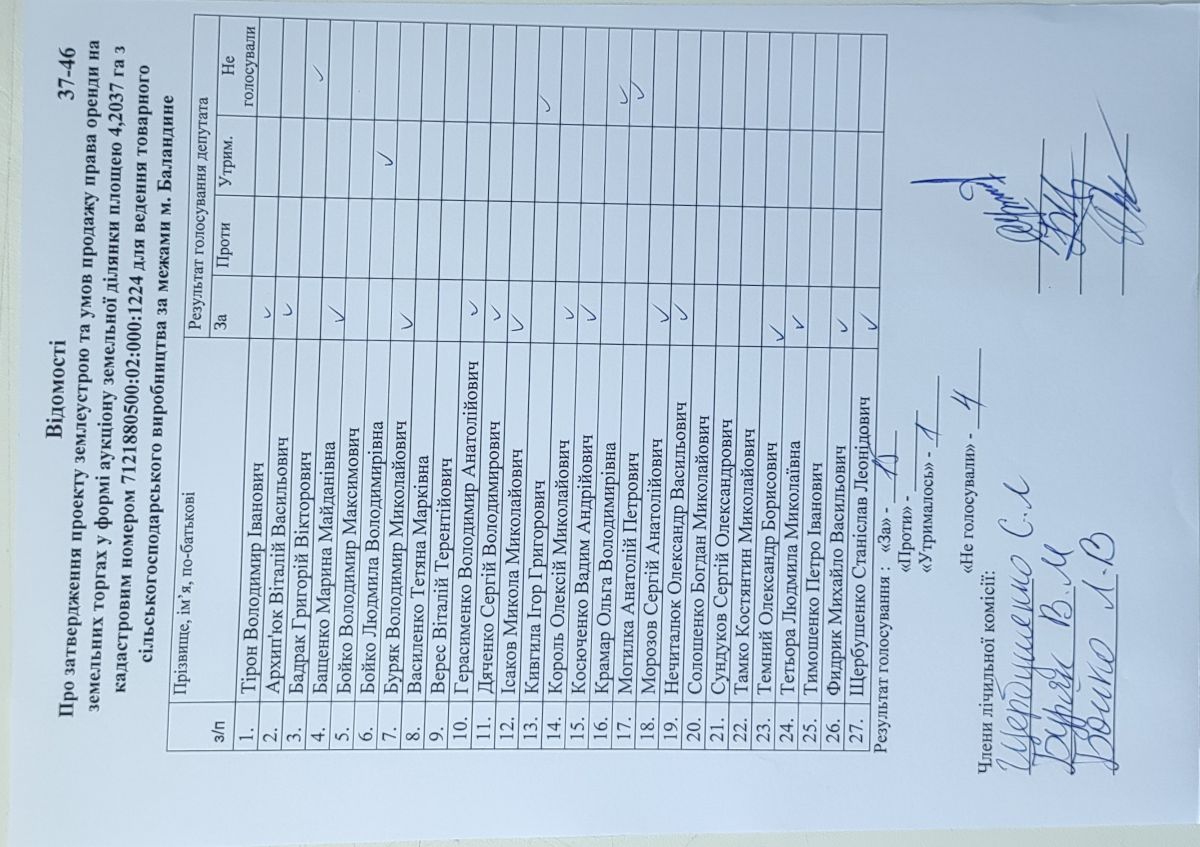 Відомості
37-46
Про затвердження проекту землеустрою та умов продажу права оренди на
земельних торгах у формі аукціону земельної ділянки площею 4,2037 га з
кадастровим номером 7121880500:02:000:1224 для ведення товарного
сільськогосподарського виробництва за межами м. Баландине
з/п Прізвище, ім’я, по-батькові Результат голосування депутата
За Проти Утрим. Не голосували
1. Тірон Володимир Іванович
2. Архип'юк Віталій Васильович ✓
3. Бадрак Григорій Вікторович ✓
4. Бащенко Марина Майданівна ✓
5. Бойко Володимир Максимович ✓
6. Бойко Людмила Володимирівна
7. Буряк Володимир Миколайович ✓
8. Василенко Тетяна Марківна ✓
9. Верес Віталій Терентійович
10. Герасименко Володимир Анатолійович
11. Дяченко Сергій Володимирович ✓
12. Ісаков Микола Миколайович ✓
13. Кивгила Ігор Григорович ✓
14. Король Олексій Миколайович ✓
15. Косюченко Вадим Андрійович ✓
16. Крамар Ольга Володимирівна ✓
17. Могилка Анатолій Петрович ✓
18. Морозов Сергій Анатолійович ✓
19. Нечиталюк Олександр Васильович ✓
20. Солошенко Богдан Миколайович ✓
21. Сундуков Сергій Олександрович
22. Тамко Костянтин Миколайович
23. Темний Олександр Борисович
24. Тетьора Людмила Миколаївна ✓
25. Тимошенко Петро Іванович ✓
26. Фидрик Михайло Васильович
27. Щербушенко Станіслав Леонідович ✓
Результат голосування : «За» - 15
«Проти» -
«Утрималось» - 1
«Не голосували» - 4
Члени лічильної комісії:
Щербушенко С.Л
Буряк В.М
Бойко Л.В